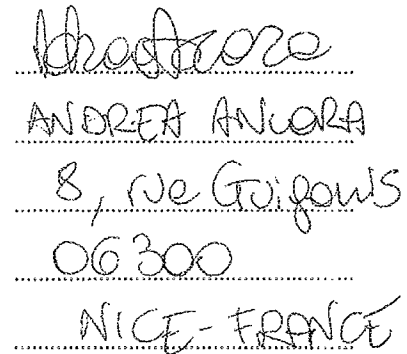 ANDREA ANCORA
8, rue Guigonis
06300
NICE-FRANCE